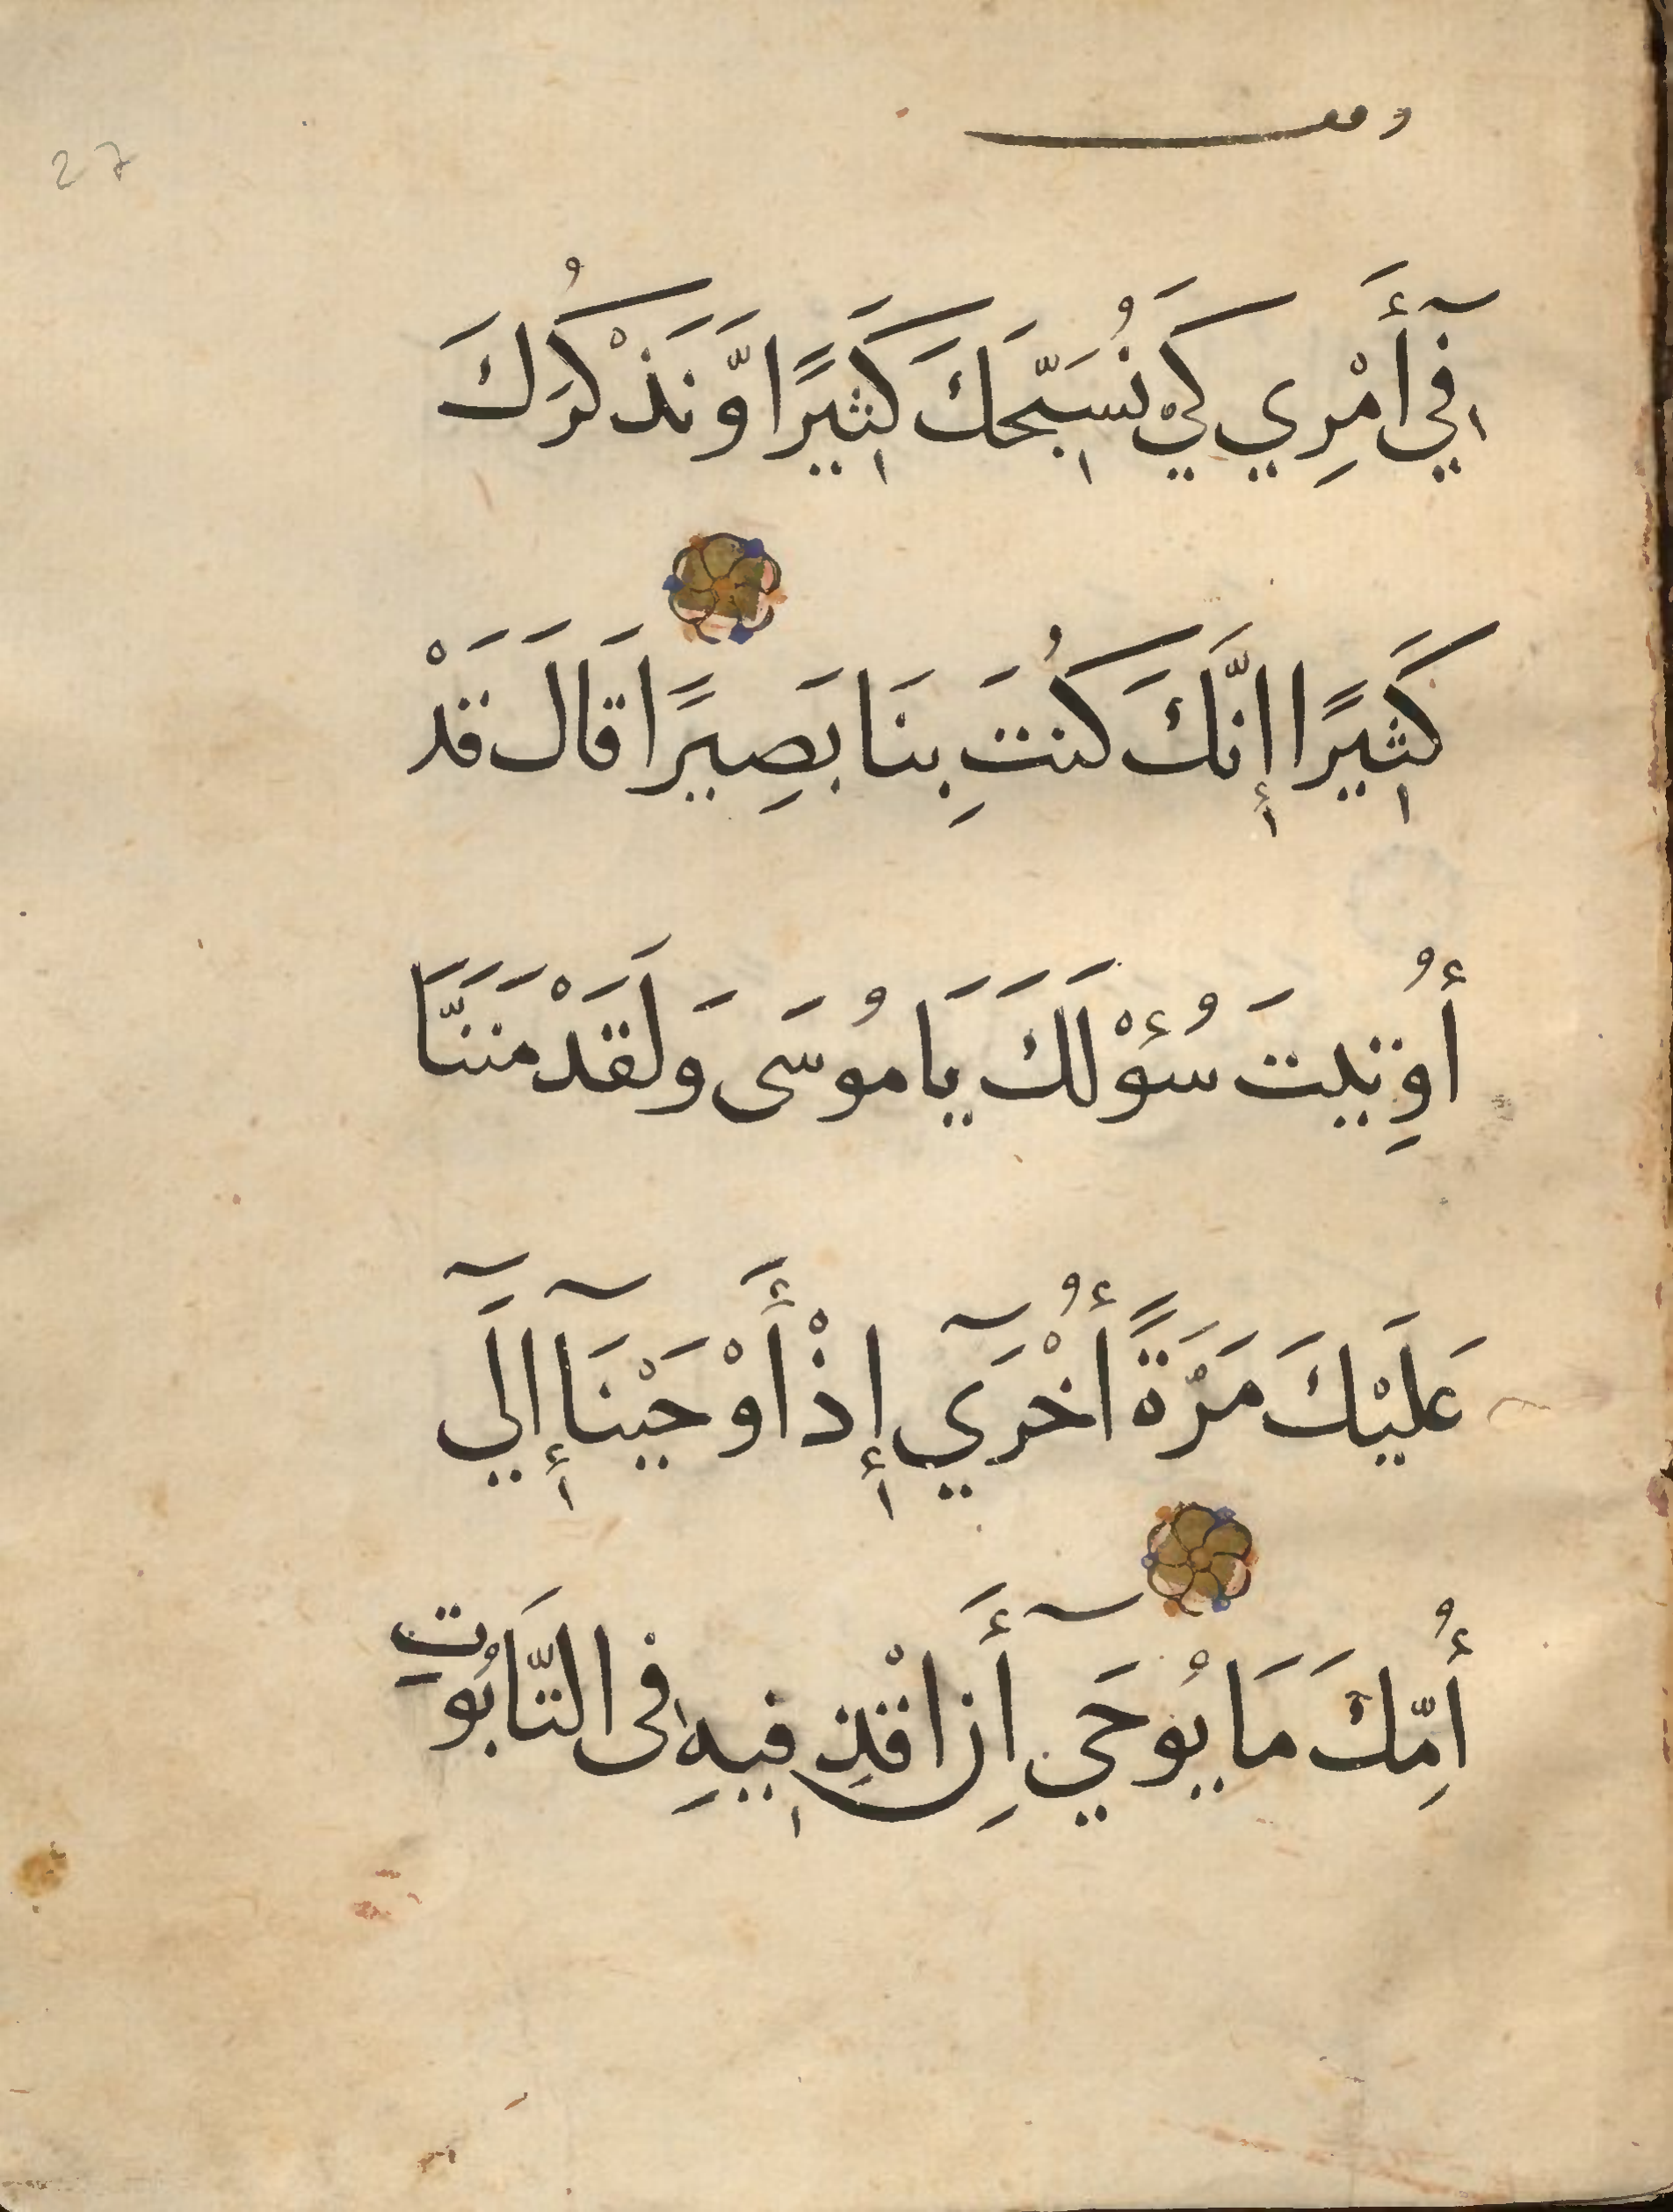 وقف
27
فِي أَمْرِي كَيْ نُسَبِّحَكَ كَثِيرًا وَّنَذْكُرَكَ
كَثِيرًا إِنَّكَ كُنتَ بِنَا بَصِيرًا قَالَ قَدْ
أُوتِيتَ سُؤْلَكَ يَا مُوسَى وَلَقَدْ مَنَنَّا
عَلَيْكَ مَرَّةً أُخْرَي إِذْ أَوْحَيْنَآ إِلَي
أُمِّكَ مَا يُوحَي أَنِ اقْذِفِيهِ فِى التَّابُوتِ